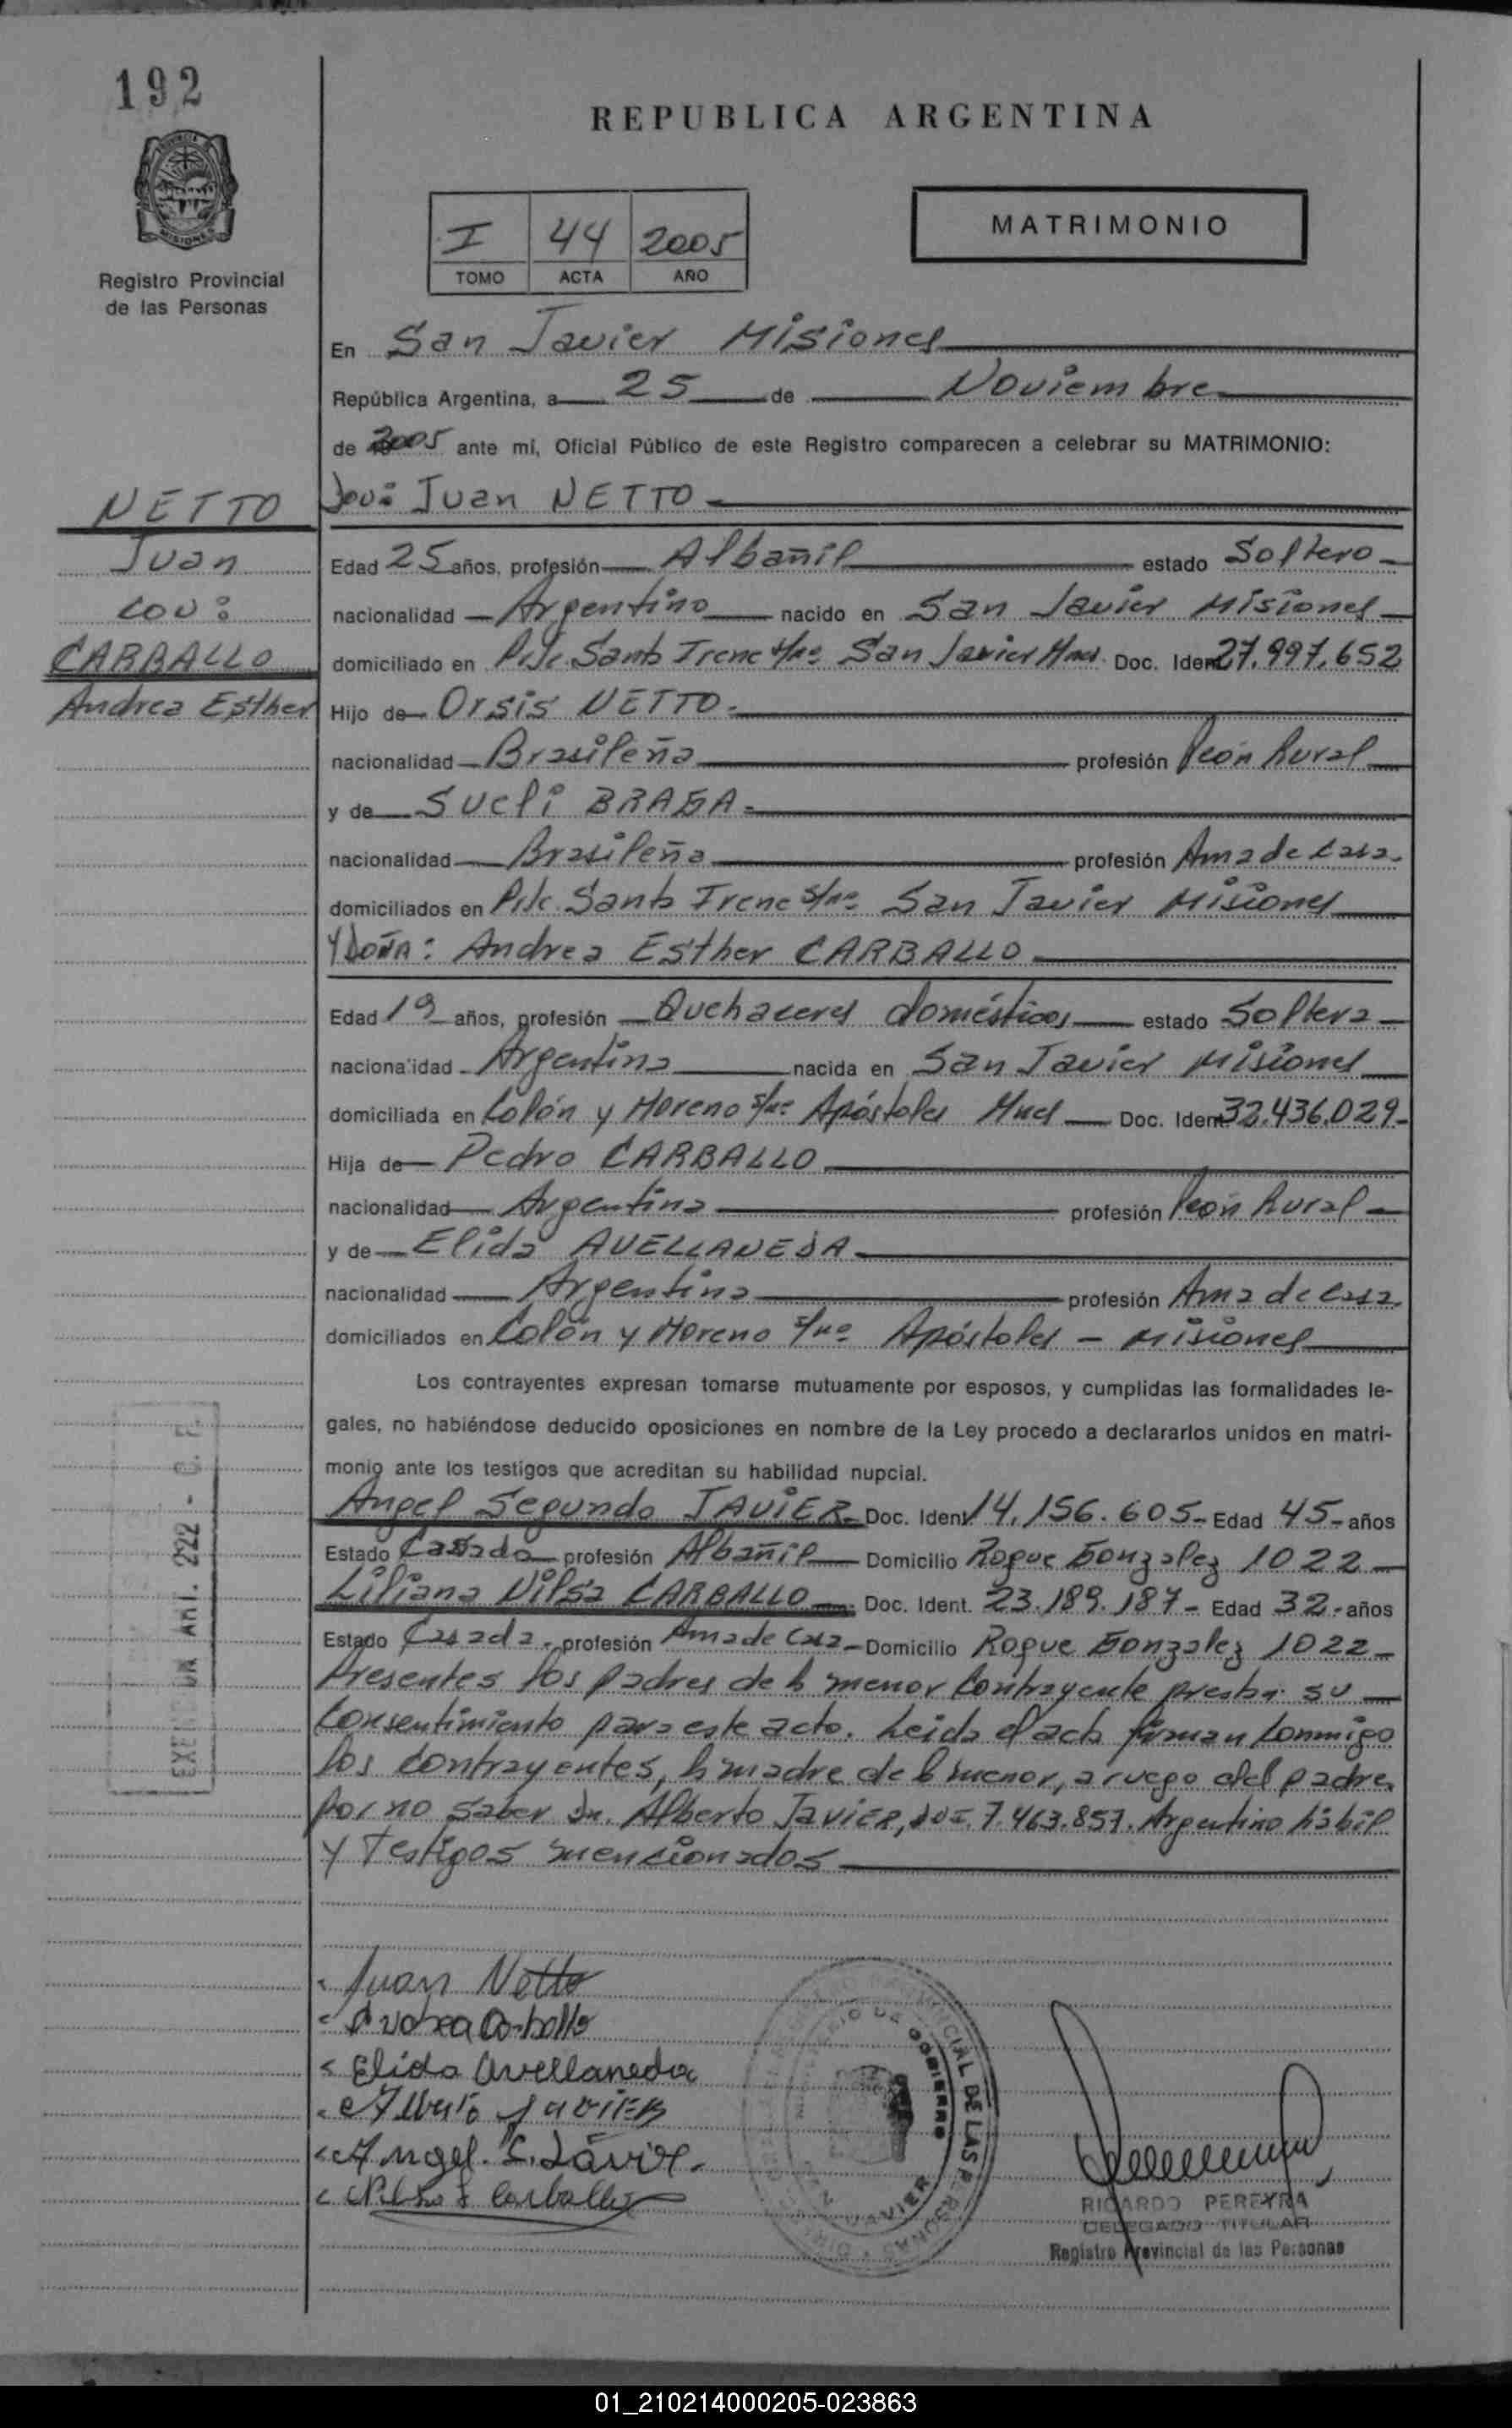 192
REPUBLICA ARGENTINA
MISIONES
Registro Provincial
de las Personas
I 44 2005
TOMO ACTA AÑO
MATRIMONIO
En San Javier Misiones
República Argentina, a 25 de Noviembre
de 2005 ante mi, Oficial Público de este Registro comparecen a celebrar su MATRIMONIO:
NETTO
Juan NETTO
Juan
Edad 25 años, profesión Albañil estado Soltero
con:
nacionalidad Argentino nacido en San Javier Misiones
CARBALLO
domiciliado en Pje. Santo Irene s/nº San Javier Mnes. Doc. Ident 27.997.652
Andrea Esther
Hijo de Orsis NETTO
nacionalidad Brasileña profesión Peón Rural
y de Sueli BRAGA
nacionalidad Brasileña profesión Ama de Casa.
domiciliados en Pje. Santo Irene s/nº San Javier Misiones
Y DOÑA: Andrea Esther CARBALLO
Edad 19 años, profesión Quehaceres domésticos estado Soltera
nacionalidad Argentina nacida en San Javier Misiones
domiciliada en Colón y Moreno s/nº Apóstoles Mnes Doc. Ident 32.436.029
Hija de Pedro CARBALLO
nacionalidad Argentina profesión Peón Rural
y de Elida AVELLANEDA
nacionalidad Argentina profesión Ama de Casa.
domiciliados en Colón y Moreno s/nº Apóstoles - Misiones
Los contrayentes expresan tomarse mutuamente por esposos, y cumplidas las formalidades le-
gales, no habiéndose deducido oposiciones en nombre de la Ley procedo a declararlos unidos en matri-
monio ante los testigos que acreditan su habilidad nupcial.
Angel Segundo JAVIER Doc. Ident 14.156.605 Edad 45 años
Estado Casado profesión Albañil Domicilio Roque Gonzalez 1022
Liliana Nilsa CARBALLO Doc. Ident. 23.189.187 Edad 32 años
Estado Casada profesión Ama de Casa Domicilio Roque Gonzalez 1022
Presentes los padres de la menor contrayente prestan su
Consentimiento para este acto. Leida el acta firman conmigo
los contrayentes, la madre de la menor, a ruego del padre
por no saber Dn. Alberto JAVIER, 7.463.857. Argentino hábil
y testigos mencionados
ART. 222 - C. C.
Juan Netto
Andrea Carballo
Elida Avellaneda
Alberto JAVIER
Angel. S. Javier.
Carballo
REGISTRO PROVINCIAL DE LAS PERSONAS
MINISTERIO DE GOBIERNO
SAN JAVIER
RICARDO PEREYRA
DELEGADO TITULAR
Registro Provincial de las Personas
01_210214000205-023863